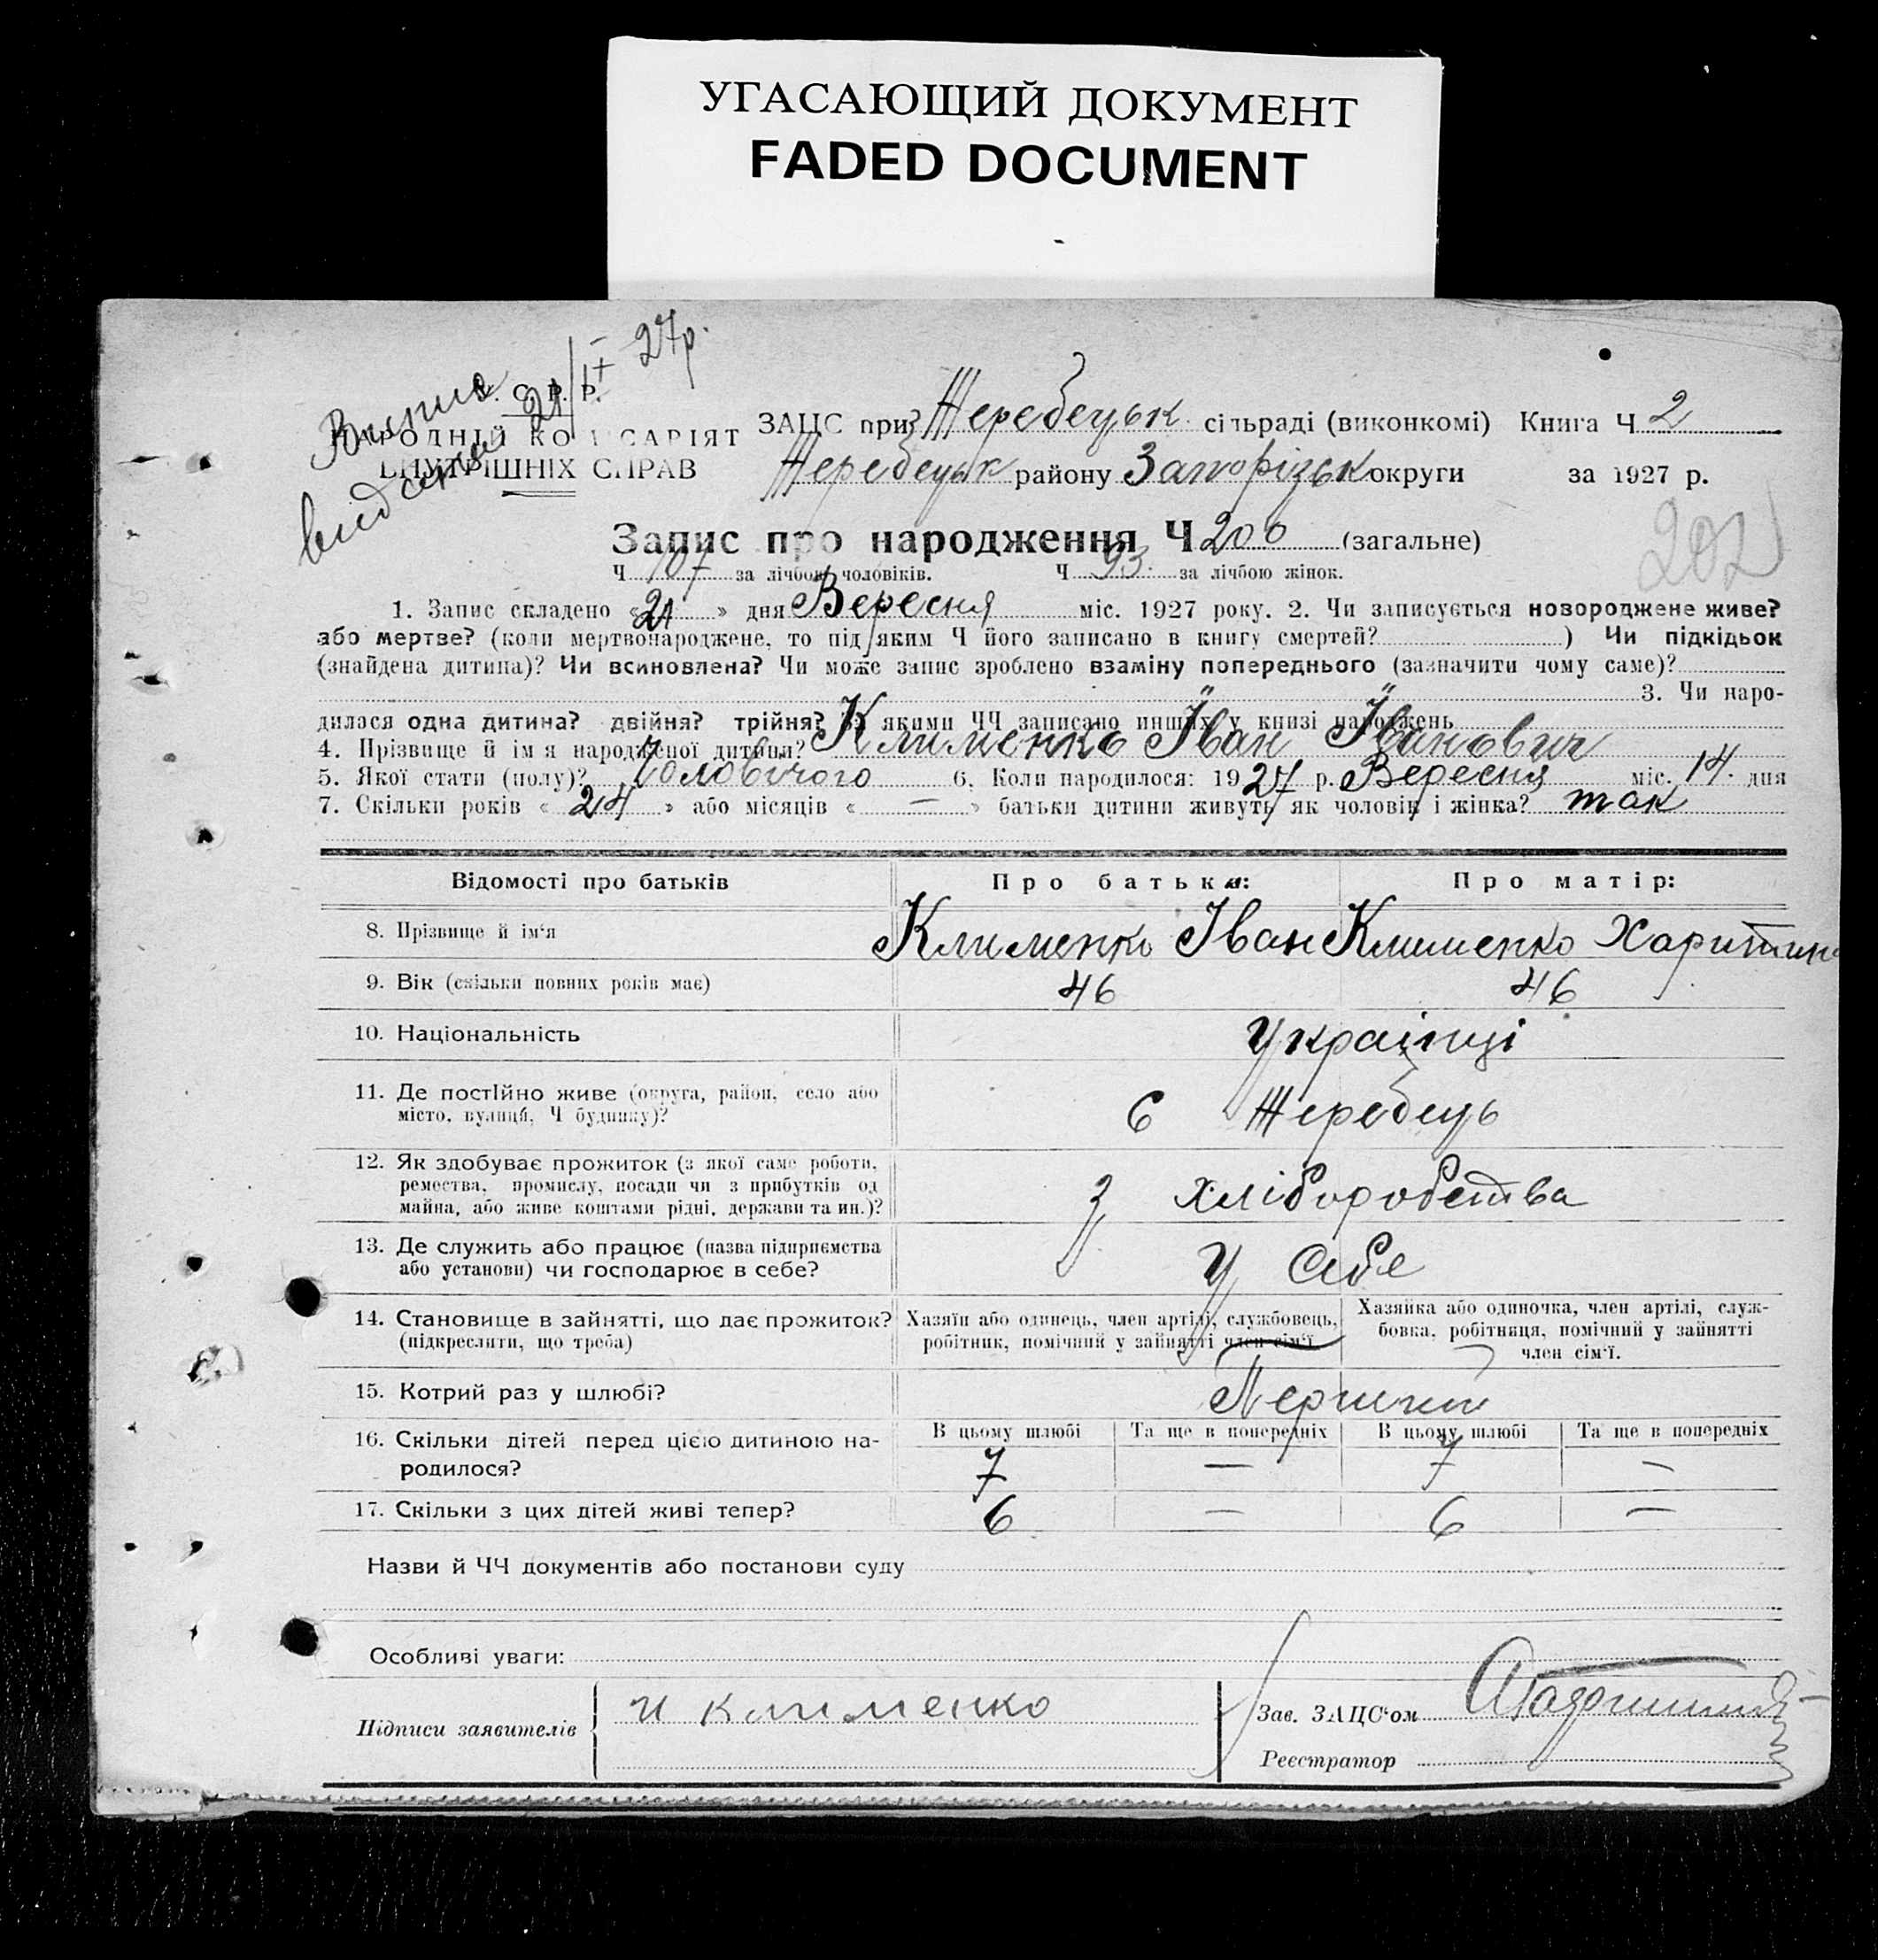 УГАСАЮЩИЙ ДОКУМЕНТ
FADED DOCUMENT
Випис
видано 21/IX 27р.
У. С. Р. Р.
НАРОДНІЙ КОМІСАРІЯТ
ВНУТРІШНІХ СПРАВ
ЗАЦС при Жеребецьк сільраді (виконкомі) Книга Ч 2
Жеребецьк району Запорізьк округи за 1927 р.
Запис про народження Ч 200 (загальне)
202
Ч 107 за лічбою чоловіків. Ч 93 за лічбою жінок.
1. Запис складено «21» дня Вересня міс. 1927 року. 2. Чи записується новороджене живе?
або мертве? (коли мертвонароджене, то під яким Ч його записано в книгу смертей? ) Чи підкідьок
(знайдена дитина)? Чи всиновлена? Чи може запис зроблено взаміну попереднього (зазначити чому саме)?
3. Чи наро-
дилася одна дитина? двійня? трійня? якими ЧЧ записано инших у книзі народжень
4. Прізвище й ім'я народженої дитини? Клименко Іван Іванович
5. Якої стати (полу)? Чоловічого 6. Коли народилося: 1927 р. Вересня міс. 14. дня
7. Скільки років «24» або місяців «—» батьки дитини живуть як чоловік і жінка? так
Відомості про батьків Про батька: Про матір:
8. Прізвище й ім'я Клименко Іван Клименко Харитина
9. Вік (скільки повних років має) 46 46
10. Національність Українці
11. Де постійно живе (округа, район, село або
місто, вулиця, Ч будинку)? с Жеребець
12. Як здобуває прожиток (з якої саме роботи,
ремества, промислу, посади чи з прибутків од
майна, або живе коштами рідні, держави та ин.)? з хліборобства
13. Де служить або працює (назва підприємства
або установи) чи господарює в себе? У себе
14. Становище в зайнятті, що дає прожиток?
(підкреслити, що треба)
Хазяїн або одинець, член артілі, службовець,
робітник, помічний у зайнятті член сім'ї
Хазяйка або одиночка, член артілі, служ-
бовка, робітниця, помічний у зайнятті
член сім'ї.
15. Котрий раз у шлюбі? Перший
В цьому шлюбі Та ще в попередніх В цьому шлюбі Та ще в попередніх
16. Скільки дітей перед цією дитиною на-
родилося? 7 — 7 —
17. Скільки з цих дітей живі тепер? 6 — 6 —
Назви й ЧЧ документів або постанови суду
Особливі уваги:
Підписи заявителів и клименко
Зав. ЗАЦС'ом
Реєстратор